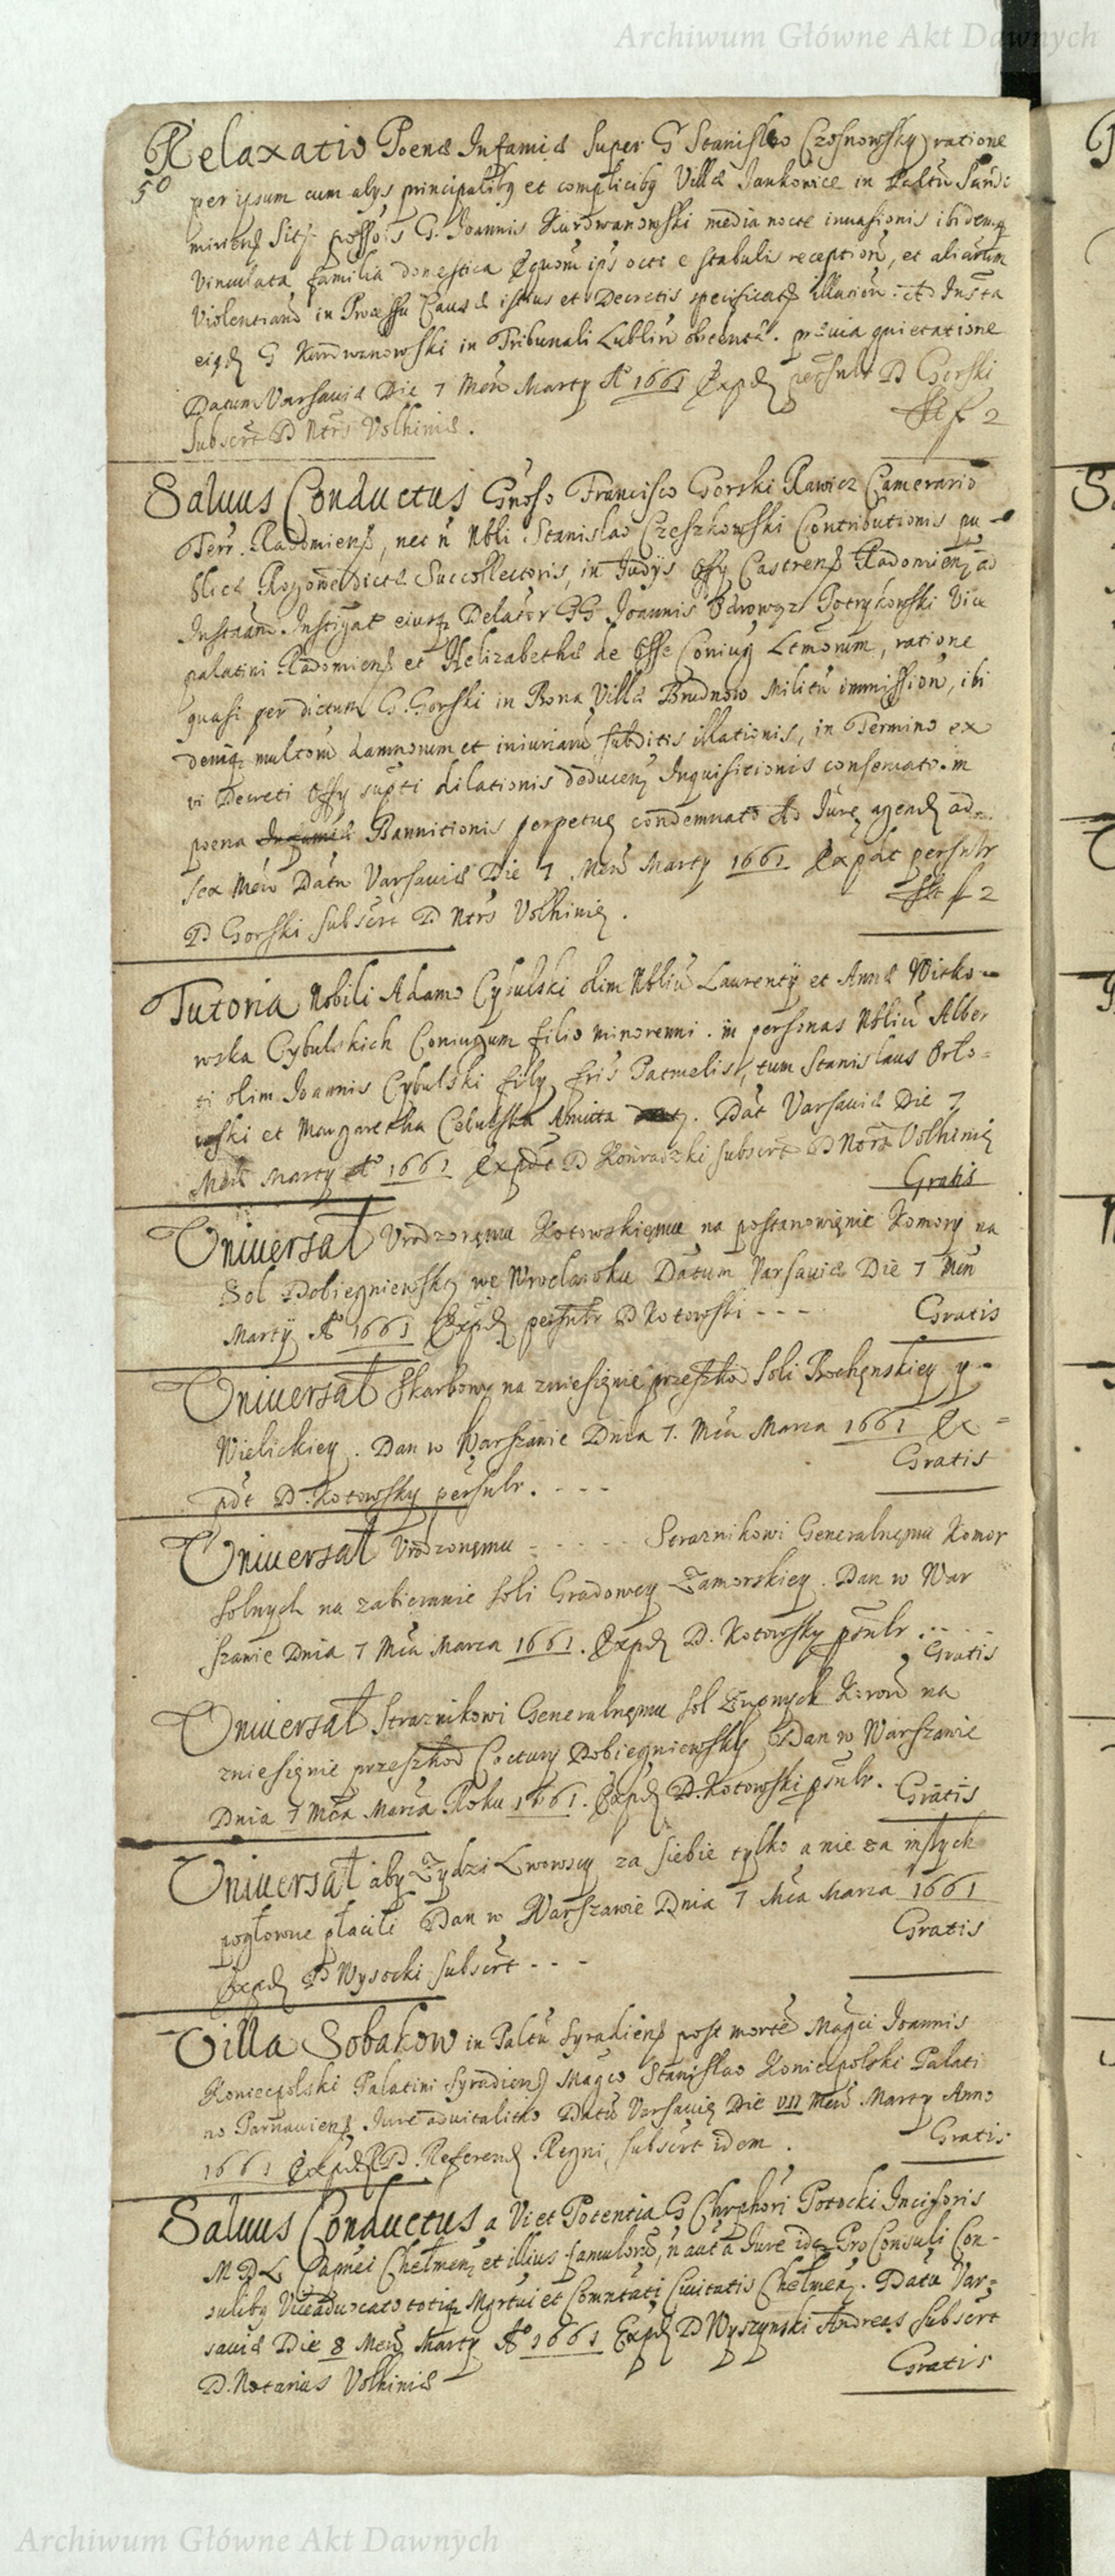 Archiwum Główne Akt Dawnych
Relaxatio Poenæ Infamiæ super G Stanislao Czosnowsky ratione
50 per ipsum cum alys principalibq et complicibq Villæ Jankowice in Paltu Sando
miriens sitæ possois G. Joannis Kurdwanowski media nocte inuasionis ibidemq
Vinculata familia domestica Equorū ips octo e stabulis receptioń, et aliarum
Violentiarū in Processu Causæ istius et Decretis specificat illation: Ad Insta
eiusd G Kurdwanowski in Tribunali Lubliń obtenta. prævia quietatione
Datum Varsaviæ Die 7 Meń Marty Aº 1661 Exped per D Gorski
Subscrt D Ntrs Volhiniæ. fl 2
Saluus Conductus Gnoso Francisco Gorski Rawicz Camerario
Terr. Radomiens, nec ń Nbli Stanislao Czeszkowski Contributionis pu
blicæ Pogłowne dictæ Succollectoris, in Judys Offy Castrens Radomien ad
Instaām Instigat eiusq Delator GG Joannis Odrowąz Potrykowski Vice
palatini Radomiens et Helizabethæ de Esse Coniug Ltmorum, ratione
quasi per dictum G. Gorski in Bona Villæ Brudnow Militū immission, ibi
demq multorū damnorum et iniuriarū subditis illationis, in Termino ex
vi Decreti Offy supti dilationis deducen Inquisitionis conseruato in
poena Infamiæ Bannitionis perpetuæ condemnato Ad Jure agend ad
sex Meń Datū Varsaviæ Die 7 Meń Marty 1661 Expdt persulr
D Gorski subscrt D Ntrs Volhiniæ. fl 2
Tutoria Nobili Adamo Cybulski olim Nbliū Laurentÿ et Annæ Witko-
wska Cybulskich Coniugum filio minorenni. in personas Nbliū Alber
ti olim Joannis Cybulski fily, fris Patruelis, tum Stanislaus Orło=
wski et Margaretha Cebulska Amita. Dat Varsaviæ Die 7
Meń Marty Aº 1661 Expdt D Konradzki subscrt D Ntrs Volhiniæ
Gratis
Uniuersał Urodzonęmu Kotowskięmu na postanowięnie Komory na
Sol Dobiegniewską we Wrocławku Datum Varsaviæ Die 7 Meń
Martÿ Aº 1661 Exped persulr D Kotowski - - - Gratis
Uniuersał Skarbowy na zniesięnie przeszkod Soli Bochęnskiey y
Wielickiey. Dan w Warszawie Dnia 7. Mca Marca 1661 Ex=
pdt D. Kotowsky persulr. - - - Gratis
Uniuersał Urodzonęmu - - - - - Straznikowi Generalnęmu Komor
Solnych na zabieranie soli Gradowey Zamorskiey. Dan w War
szawie Dnia 7 Mca Marca 1661. Exped D. Kotowsky psulr. - - -
Gratis
Uniuersał Straznikowi Generalnęmu sol Zupnych Korow na
zniesięnie przeszkod Coctury Dobiegniewsky Dan w Warszawie
Dnia 7 Mca Marca Roku 1661. Exped D. Kotowski psulr. Gratis
Uniuersał aby Zydzi Lwowscy za siebie tylko a nie za inszych
pogłowne płacili Dan w Warszawie Dnia 7 Mca Marca 1661
Exped D Wysocki subscrt - - - Gratis
Villa Sobakow in Paltu Syradiens post mortē Magci Joannis
Koniecpolski Palatini Syradiens Magco Stanislao Koniecpolski Palati
no Parnauiens Jure aduitalitio Datū Varsaviæ Die VII Meń Marty Anno
1661 Exped D. Referend Regni, subscrt idem. Gratis
Saluus Conductus a Vi et Potentia G Chrphori Potocki Incisoris
M D L Capnei Chełmen et illius famulorū, ń aut a Jure idq Pro Consuli Con-
sulibq Viceaduocato totiq Mgrtui et Comntati Ciuitatis Chełmen. Datū Var=
saviæ Die 8 Meń Marty Aº 1661 Exped D Wyszynski Andreas subscrt
D. Notarius Volhiniæ Gratis
Archiwum Główne Akt Dawnych